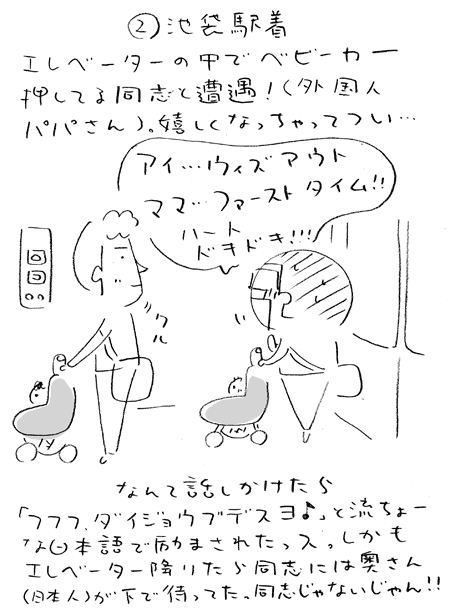 ②池袋駅着
エレベーターの中でベビーカー
押してる同志と遭遇！(外国人
パパさん)。嬉しくなっちゃってつい…
アイ…ウィズアウト
ママ…ファーストタイム!!
ハート
ドキドキ!!!
クル
なんて話しかけたら
「フフフ、ダイジョウブデスヨ♪」と流ちょー
な日本語で励まされたっス。しかも
エレベーター降りたら同志には奥さん
(日本人)が下で待ってた。同志じゃないじゃん!!